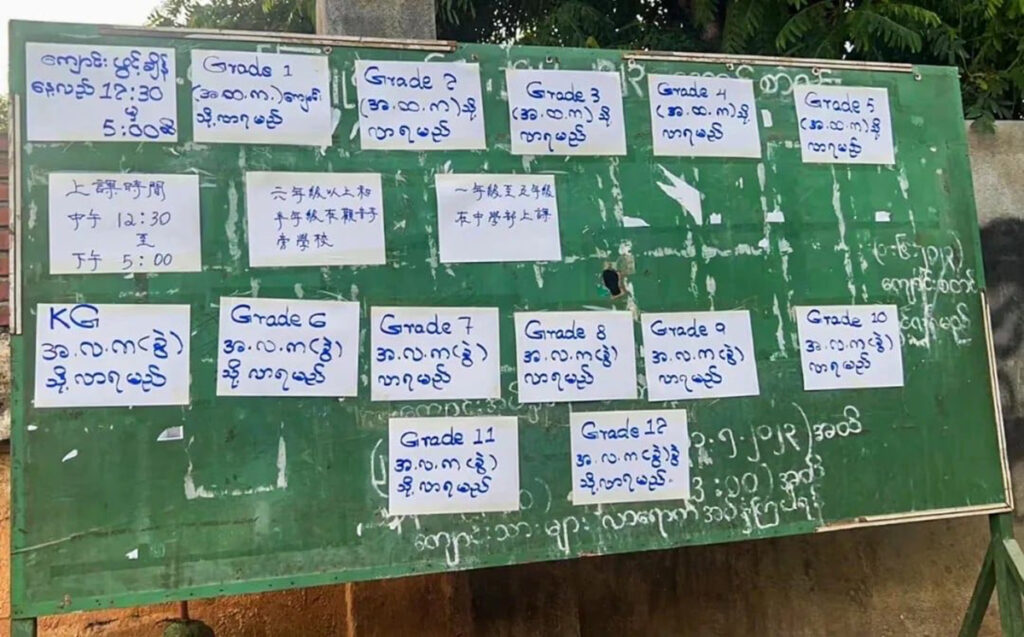 ကျောင်းဖွင့်ချိန်
နေ့လည် 12:30
မှ
5:00ထိ
Grade 1
(အ.ထ.က.)ကျောင်း
သို့လာရမည်
Grade 2
(အ.ထ.က)သို့
လာရမည်
Grade 3
(အ.ထ.က)သို့
လာရမည်
Grade 4
(အ.ထ.က)သို့
လာရမည်
Grade 5
(အ.ထ.က)သို့
လာရမည်
上課時間
中午 12:30
至
下午 5:00
六年級以上和
半年級在觀音寺
旁學校
一年級至五年級
在中學部上課
KG
အ.လ.က(ခွဲ)
သို့လာရမည်
Grade 6
အ.လ.က(ခွဲ)
သို့လာရမည်
Grade 7
အ.လ.က(ခွဲ)
လာရမည်
Grade 8
အ.လ.က(ခွဲ)
လာရမည်
Grade 9
အ.လ.က(ခွဲ)
လာရမည်
Grade 10
အ.လ.က(ခွဲ)
လာရမည်
Grade 11
အ.လ.က(ခွဲ)
သို့လာရမည်
Grade 12
အ.လ.က(ခွဲ)
သို့လာရမည်
၅.၂၀၂၃)အထိ
ကျောင်းသားများ လာရောက်